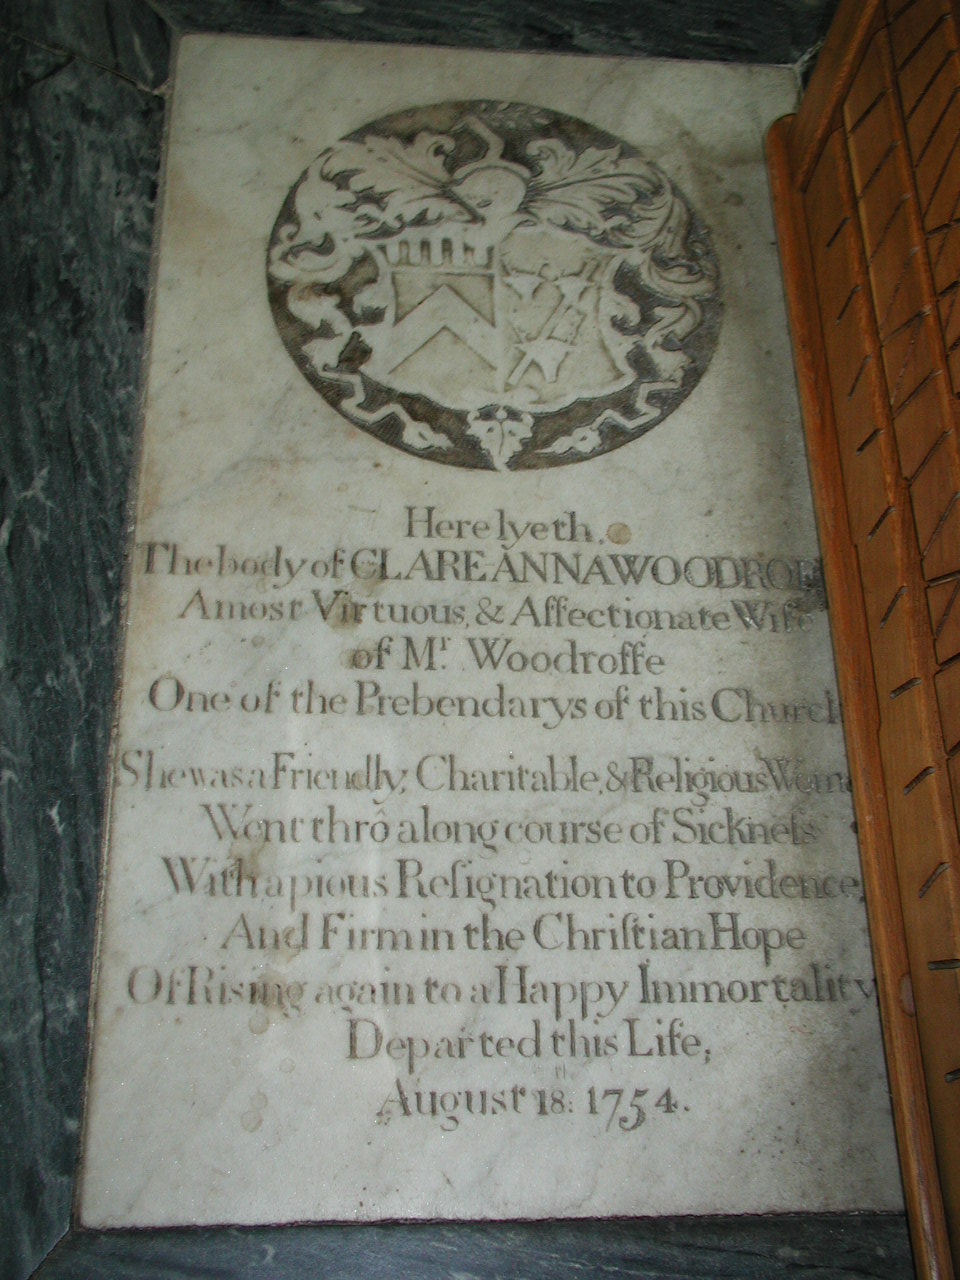 Here lyeth
The body of CLARE-ANNA WOODROF
A most Virtuous, & Affectionate Wife
of Mr. Woodroffe
One of the Prebendarys of this Church
She was a Friendly, Charitable, & Religious Woma
Went thrô a long course of Sickneſs
With a pious Reſignation to Providence,
And Firm in the Chriſtian Hope
Of Rising again to a Happy Immortality
Departed this Life,
August 18th: 1754.